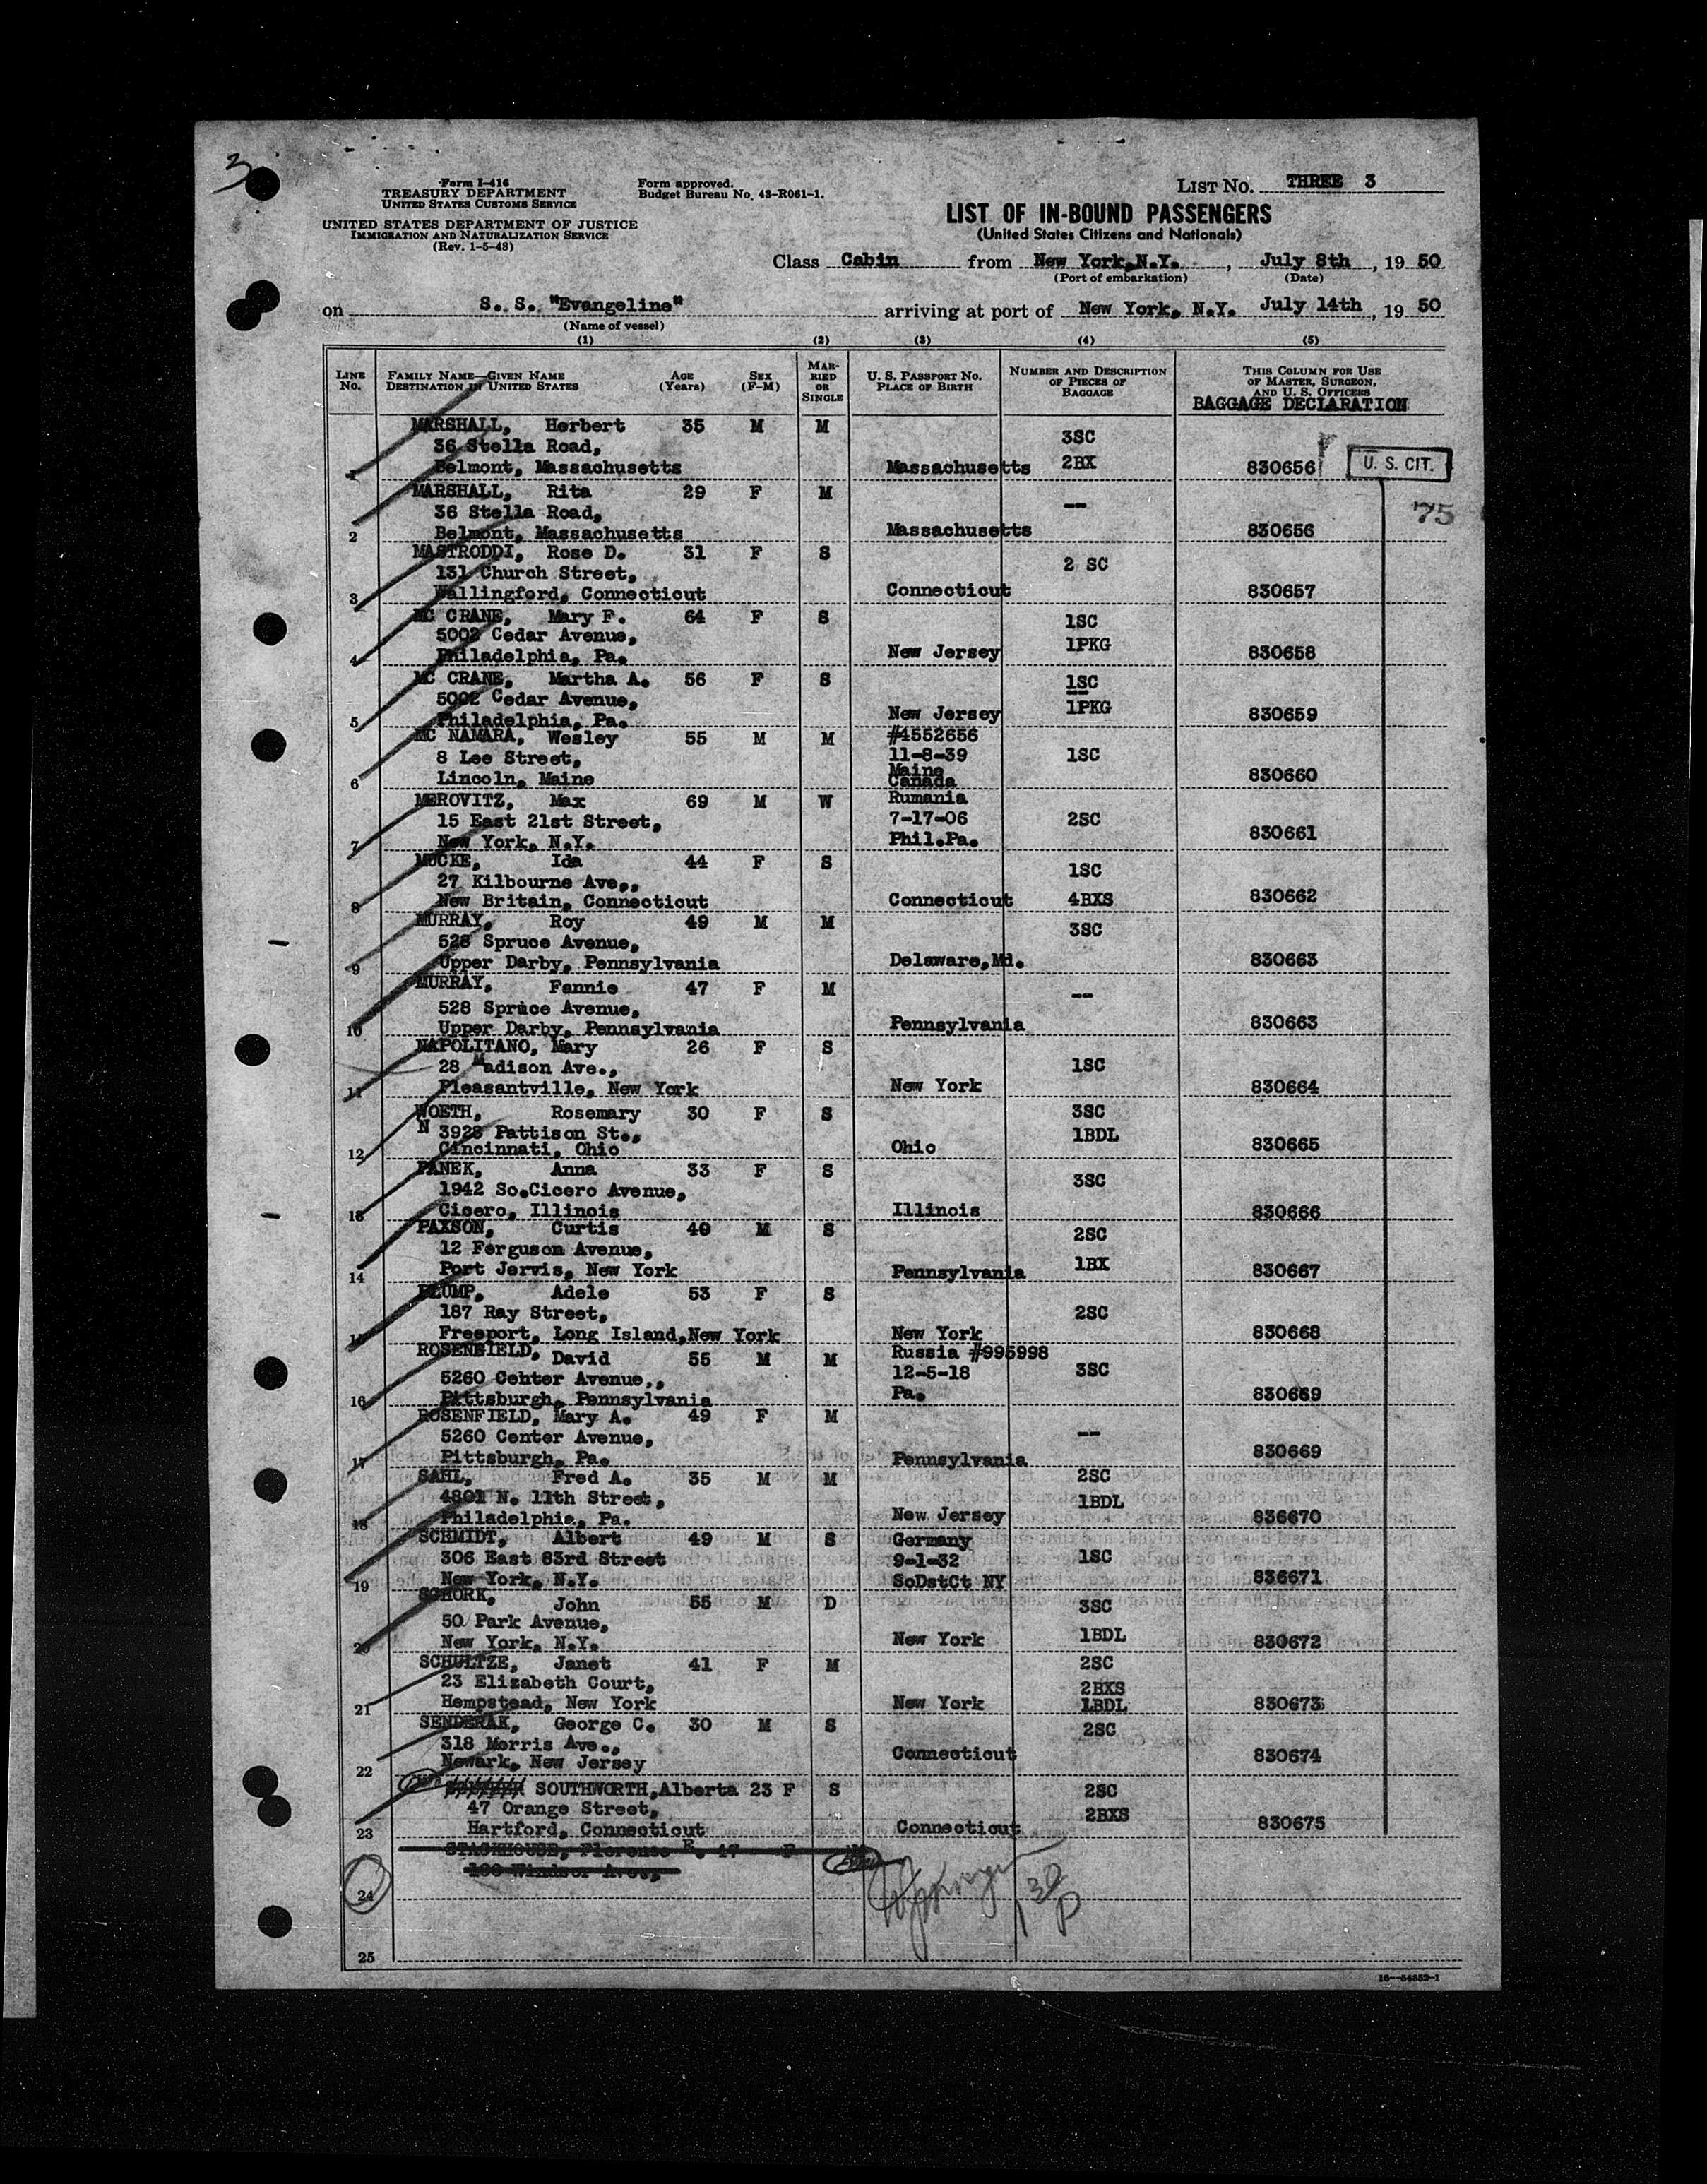 3
Form I-416
TREASURY DEPARTMENT
UNITED STATES CUSTOMS SERVICE
UNITED STATES DEPARTMENT OF JUSTICE
IMMIGRATION AND NATURALIZATION SERVICE
(Rev. 1-5-48)
Form approved.
Budget Bureau No. 43-R061-1.
LIST NO. THREE 3
LIST OF IN-BOUND PASSENGERS
(United States Citizens and Nationals)
Class Cabin from New York,N.Y., July 8th, 19 50
(Port of embarkation) (Date)
on S. S. "Evangeline" arriving at port of New York, N.Y. July 14th, 19 50
(Name of vessel)
(1) (2) (3) (4) (5)
LINE No. FAMILY NAME—GIVEN NAME DESTINATION IN UNITED STATES AGE (Years) SEX (F-M) MARRIED OR SINGLE U. S. PASSPORT NO. PLACE OF BIRTH NUMBER AND DESCRIPTION OF PIECES OF BAGGAGE THIS COLUMN FOR USE OF MASTER, SURGEON, AND U. S. OFFICERS
BAGGAGE DECLARATION
MARSHALL, Herbert 35 M M
36 Stella Road, 3SC
1 Belmont, Massachusetts Massachusetts 2BX 830656 U. S. CIT.
MARSHALL, Rita 29 F M
36 Stella Road, -- 75
2 Belmont, Massachusetts Massachusetts 830656
MASTRODDI, Rose D. 31 F S
131 Church Street, 2 SC
3 Wallingford, Connecticut Connecticut 830657
MC CRANE, Mary F. 64 F S 1SC
5002 Cedar Avenue, 1PKG
4 Philadelphia, Pa. New Jersey 830658
MC CRANE, Martha A. 56 F S 1SC
5002 Cedar Avenue, 1PKG
5 Philadelphia, Pa. New Jersey 830659
MC NAMARA, Wesley 55 M M #4552656
8 Lee Street, 11-8-39 1SC
6 Lincoln, Maine Maine 830660
Canada
MEROVITZ, Max 69 M W Rumania
15 East 21st Street, 7-17-06 2SC
7 New York, N.Y. Phil.Pa. 830661
MUCKE, Ida 44 F S 1SC
27 Kilbourne Ave.,
8 New Britain, Connecticut Connecticut 4BXS 830662
MURRAY, Roy 49 M M 3SC
528 Spruce Avenue,
9 Upper Darby, Pennsylvania Delaware,Md. 830663
MURRAY, Fannie 47 F M --
528 Spruce Avenue,
10 Upper Darby, Pennsylvania Pennsylvania 830663
NAPOLITANO, Mary 26 F S
28 Madison Ave., 1SC
11 Pleasantville, New York New York 830664
WOETH, Rosemary 30 F S 3SC
N 3928 Pattison St., 1BDL
12 Cincinnati, Ohio Ohio 830665
PANEK, Anna 33 F S
1942 So.Cicero Avenue, 3SC
13 Cicero, Illinois Illinois 830666
PAXSON, Curtis 40 M S 2SC
12 Ferguson Avenue,
14 Port Jervis, New York Pennsylvania 1BX 830667
PLUMP, Adele 53 F S
187 Ray Street, 2SC
15 Freeport, Long Island,New York New York 830668
ROSENFIELD, David 55 M M Russia #995998
5260 Cehter Avenue,, 12-5-18 3SC
16 Pittsburgh, Pennsylvania Pa. 830669
ROSENFIELD, Mary A. 49 F M
5260 Center Avenue, --
17 Pittsburgh, Pa. Pennsylvania 830669
SAHL, Fred A. 35 M M 2SC
4801 N. 11th Street, 1BDL
18 Philadelphia, Pa. New Jersey 836670
SCHMIDT, Albert 49 M S Germany
306 East 83rd Street 9-1-32 1SC
19 New York, N.Y. SoDstCt NY 836671
SCHORK, John 55 M D 3SC
50 Park Avenue,
20 New York, N.Y. New York 1BDL 830672
SCHULTZE, Janet 41 F M 2SC
23 Elizabeth Court, 2BXS
21 Hempstead, New York New York 1BDL 830673
SENDERAK, George C. 30 M S 2SC
318 Morris Ave.,
22 Newark, New Jersey Connecticut 830674
SOUTHWORTH,Alberta 23 F S 2SC
47 Orange Street, 2BXS
23 Hartford, Connecticut Connecticut 830675
STACKHOUSE, Florence E. 17 F
100 Windsor Ave.,
24
25
16—54552-1